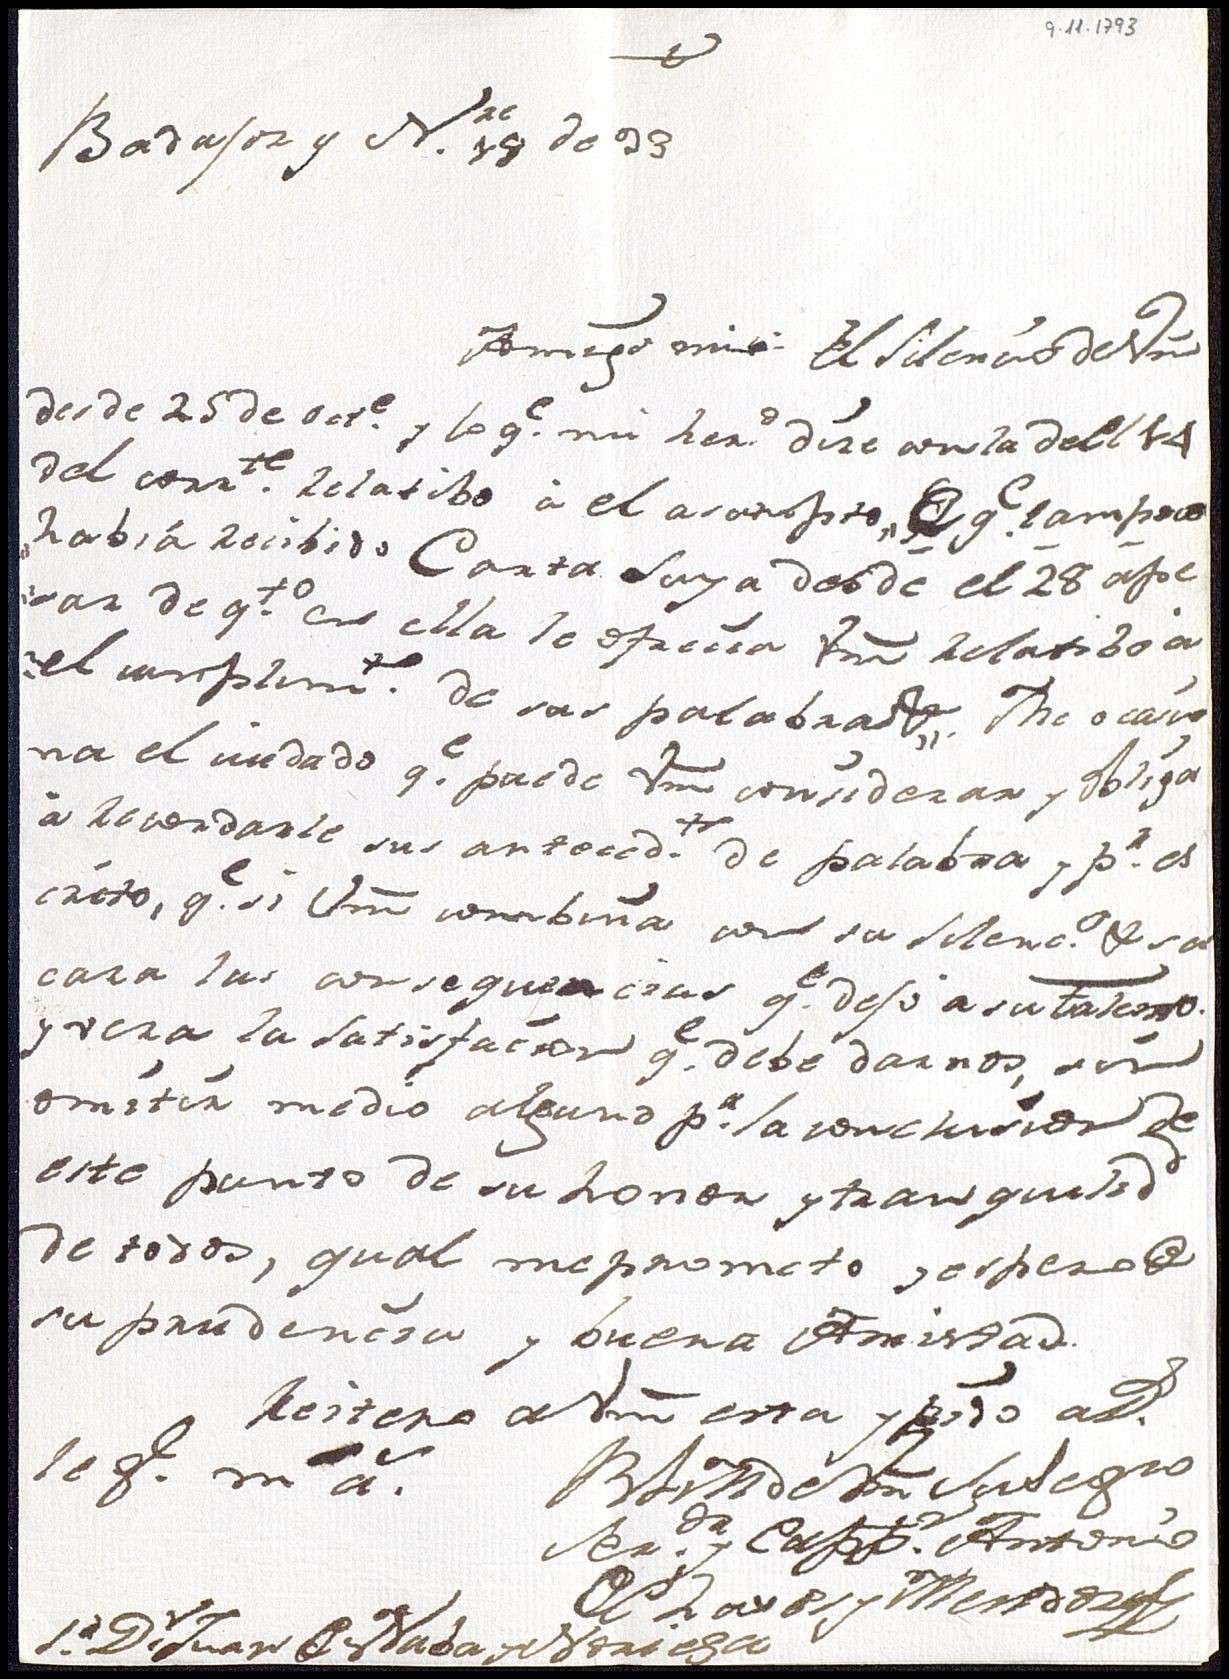 9.11.1793
Badajoz y N.re 18 de 93
Amigo mio. El Silencio de Vm
desde 25 de oct.e y lo q.e mi her.o dize con la del 14
del corr.te relatibo â el asumpto, q.e tampoco
„habiâ recibido Carta suya desde el 28 âpe
„sar de q.to en ella le ofrecia Vm relatibo â
„el cumplim.te de sus palabras„. Me ocasio
na el cuidado q.e puede Vm considerar y obliga
â recordarle sus anteced.ts de palabra y p.r es
crito, q.e si Vm combina con su silenc.o sa
cara las consequencias q.e dejo a su talento.
y vera la satisfacion q.e debe darnos, sin
omitir medio alguno p.a la conclusion de
este punto de su honor y tranquilid.d
de todos, qual me prometo y espero de
su prudencia y buena Amistad.
Reitero a Vm esta y pido a D.s
le g.e m.s a.s
B L M de Vm Su Seg.ro
Ser.dr y Capp.n Antonio
Chaves y Mendoza
S.r D.n Juan Naba y Noriega